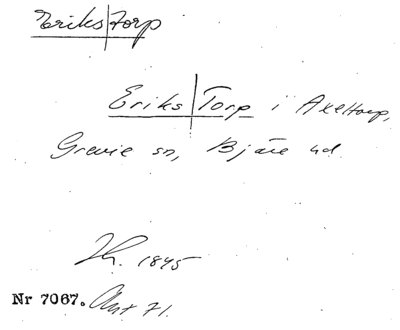 Eriks|torp
Eriks|Torp i Axeltorp,
Grevie sn, Bjäre hd.
1845
Nr 7067. Ant 71.